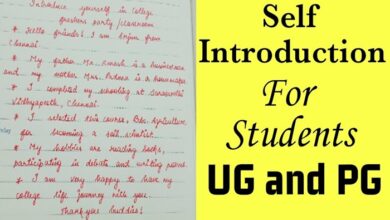 Introduce yourself in College
freshers party/classroom
* Hello friends! I am Anjum from
Chennai.
* My father Mr. Ramesh is a businessman
and my mother Mrs. Padma is a homemaker.
* I completed my schooling at Saraswathi
Vidhyapeeth, Chennai.
* I selected this course, BSc. Agriculture
for becoming a soil scientist.
* My hobbies are reading books,
participating in debate and writing poems.
* I am very happy to have my
college life journey with you.
Thank you buddies!
Self
Introduction
For
Students
UG and PG